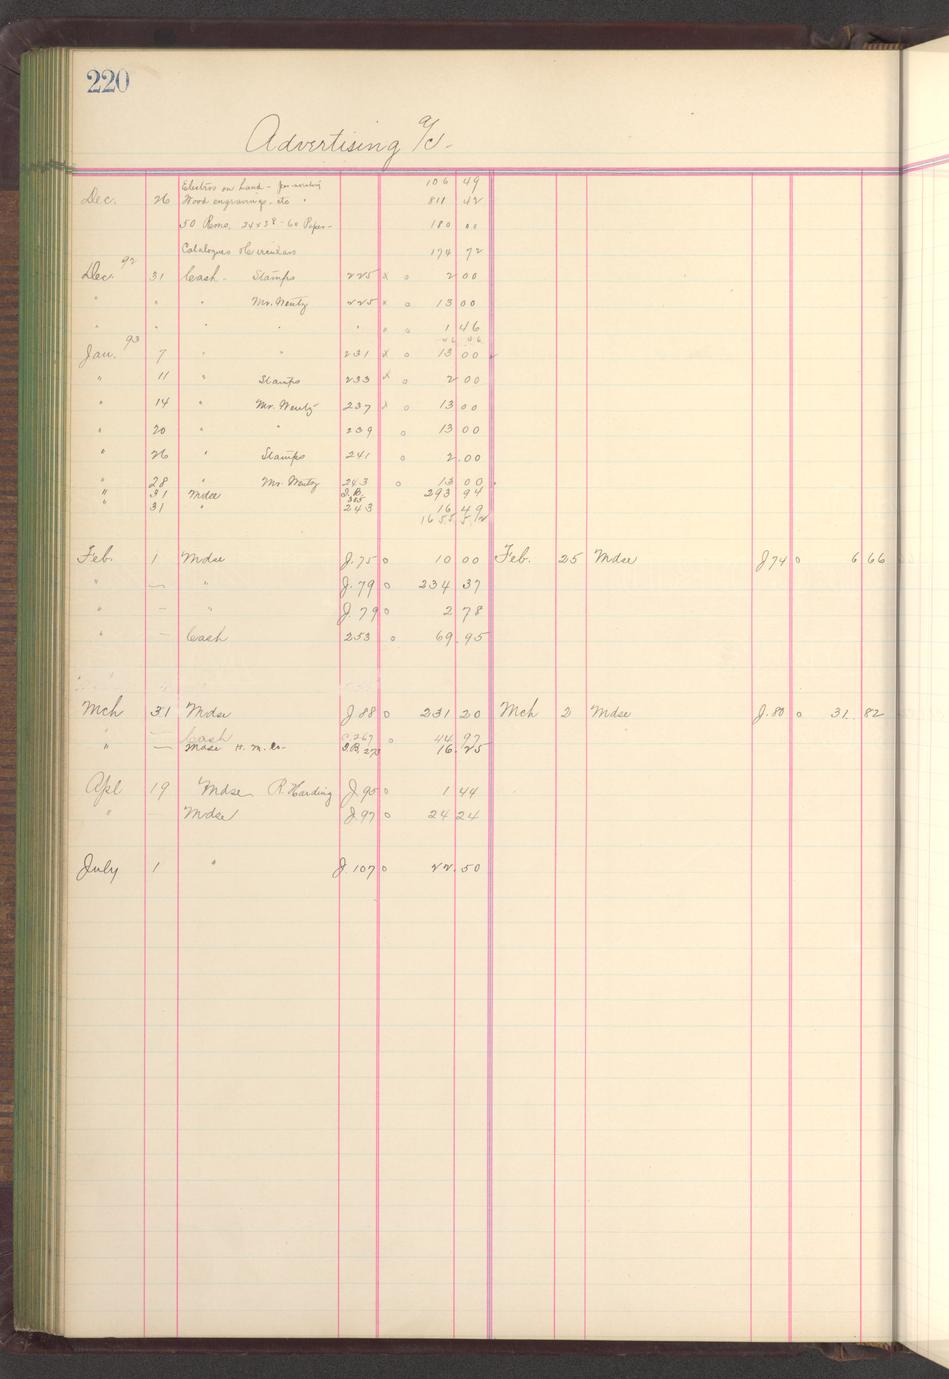 220
Advertising a/c -
Dec. 26 Electros on hand - per inventory 106 49
Wood engravings - etc " 811 42
50 Rms. 24x38 - 60 Paper - 180 00
Catalogues & Circulars 174 72
Dec. 92 31 Cash - Stamps 225 x o 2 00
" " " Mr. Wentz 225 x o 13 00
" " " " " " o 1 46
Jan. 93 7 " " 231 x o 13 00
" 11 " Stamps 233 x o 2 00
" 14 " Mr. Wentz 237 x o 13 00
" 20 " " 239 o 13 00
" 26 " Stamps 241 o 2.00
" 28 " Mr. Wentz 243 o 13 00
" 31 Mdse 293 94
" 31 " 243 16 49
1655 52
Feb. 1 Mdse J. 75 o 10 00 Feb. 25 Mdse J 74 o 6 66
" — " J. 79 o 234 37
" — " J. 79 o 2 78
" — Cash 253 o 69.95
Mch 31 Mdse J 88 o 231 20 Mch 2 Mdse J. 80 o 31 82
" — Cash C. 267 o 44 97
" — Mdse H. M. 16.25
Apl 19 Mdse R. Harding J. 95 o 1 44
" Mdse J. 97 o 24 24
July 1 " J. 107 o 22.50